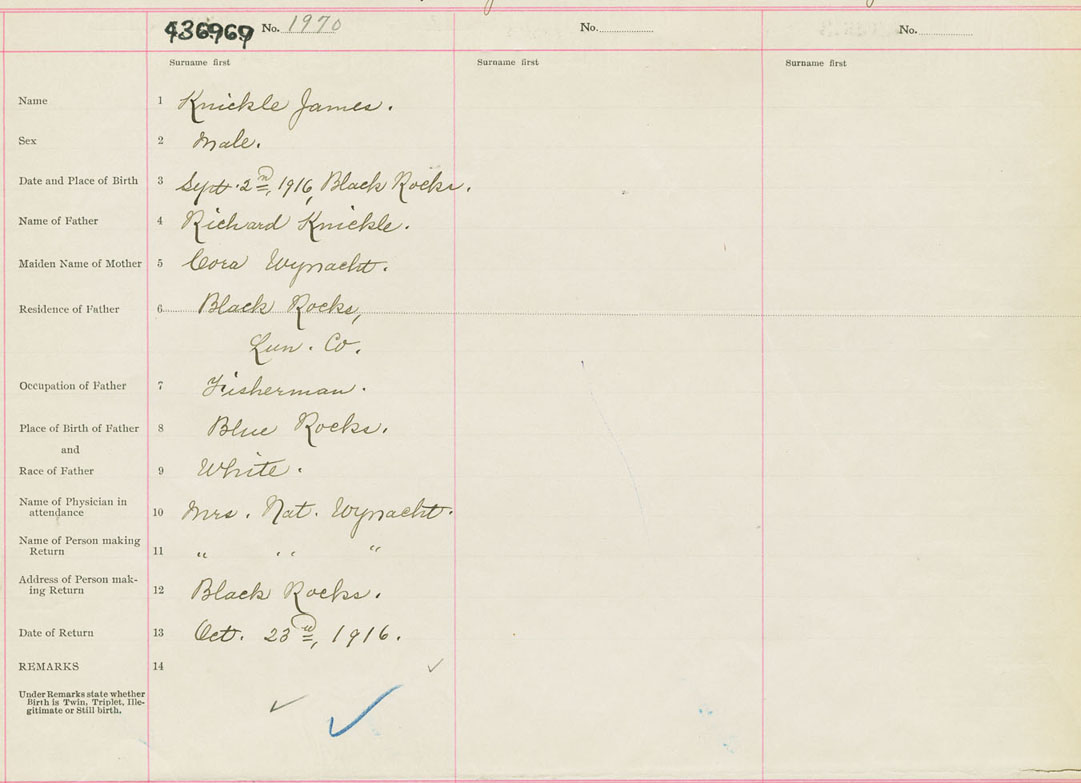 436969 No. 1970 No. No.
Surname first Surname first Surname first
Name 1 Knickle James.
Sex 2 Male.
Date and Place of Birth 3 Sept. 2nd, 1916, Black Rocks.
Name of Father 4 Richard Knickle.
Maiden Name of Mother 5 Cora Wynacht.
Residence of Father 6 Black Rocks,
Lun. Co.
Occupation of Father 7 Fisherman.
Place of Birth of Father 8 Blue Rocks.
and
Race of Father 9 White.
Name of Physician in
attendance 10 Mrs. Nat. Wynacht.
Name of Person making
Return 11 " " "
Address of Person mak-
ing Return 12 Black Rocks.
Date of Return 13 Oct. 23rd, 1916.
REMARKS 14
Under Remarks state whether
Birth is Twin, Triplet, Ille-
gitimate or Still birth.